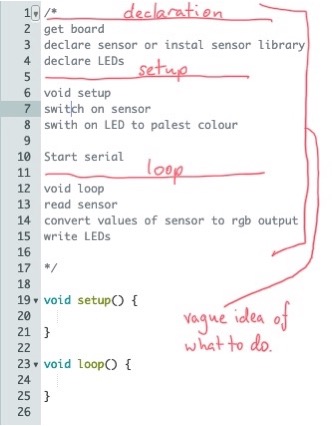 1 /* declaration
2 get board
3 declare sensor or instal sensor library
4 declare LEDs
5 setup
6 void setup
7 switch on sensor
8 swith on LED to palest colour
9
10 Start serial
11 loop
12 void loop
13 read sensor
14 convert values of sensor to rgb output
15 write LEDs
16
17 */
18
19 void setup() {
20
21 }
22
23 void loop() {
24
25 }
26
vague idea of
what to do.